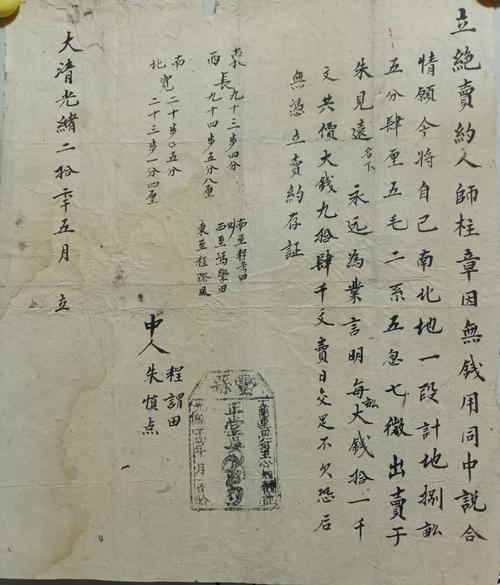 立絶賣約人師柱章因無錢用同中説合
情願今將自己南北地一段計地捌畝
五分肆厘五毛二系五忽七微出賣于
朱見遠名下永远為業言明每畝大錢拾一千
文共價大錢九拾肆千文賣日交足不欠恐后
無憑立賣約存証
東 長 九十三步四分
西 九十四步五分八厘
南 寬 二十步〇五分
北 二十三步一分四厘
南至程田
西至馮學田
東至程際風
中人 程謂田
朱慎点
正堂吳
大清光緒二拾年五月 立